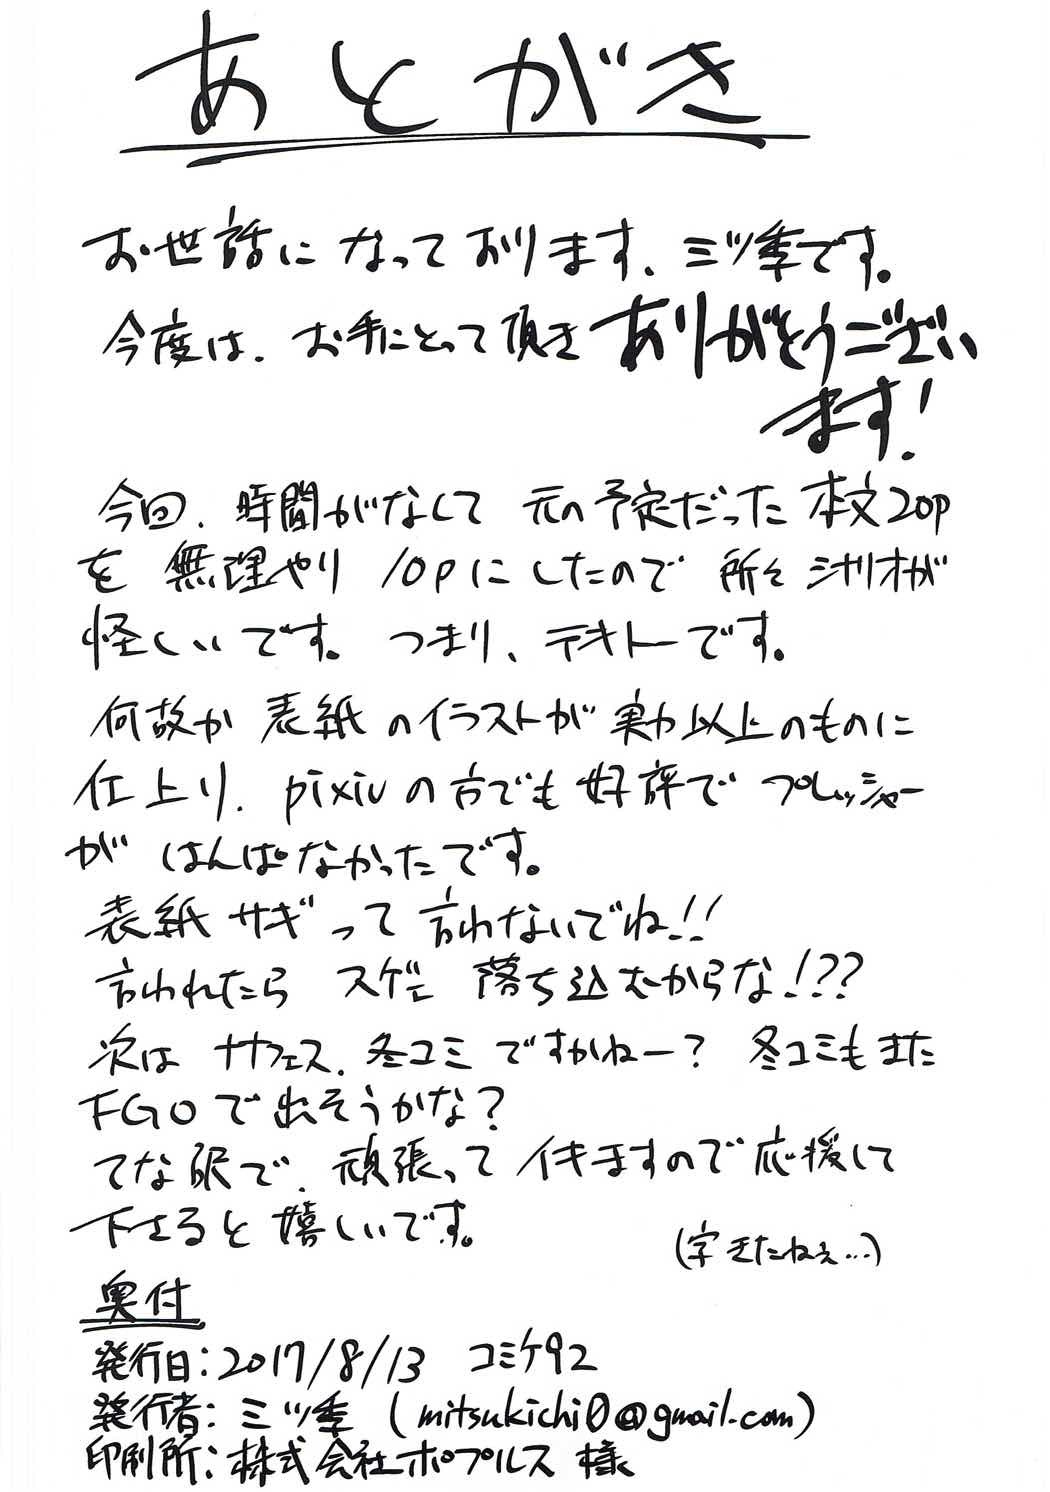 あとがき
お世話になっております、三ツ季です。
今度は、お手にとって頂きありがとうござい
ます!
今回、時間がなくて 元の予定だった 本文20p
を 無理やり 10pにしたので 所々 シナリオが
怪しいです。 つまり、テキトーです。
何故か 表紙のイラストが 実力以上のものに
仕上り、pixivの方でも 好評で プレッシャー
が はんぱなかったです。
表紙サギって 言わないでね!!
言われたら スゲェ 落ち込むからな!??
次は サナフェス、冬コミですかねー? 冬コミもまた
FGOで出そうかな?
てな訳で、頑張ってイキますので応援して
下さると嬉しいです。
(字きたねぇ…)
奥付
発行日:2017/8/13 コミケ92
発行者:三ツ季 (mitsukichi0@gmail.com)
印刷所:株式会社ポプルス 様